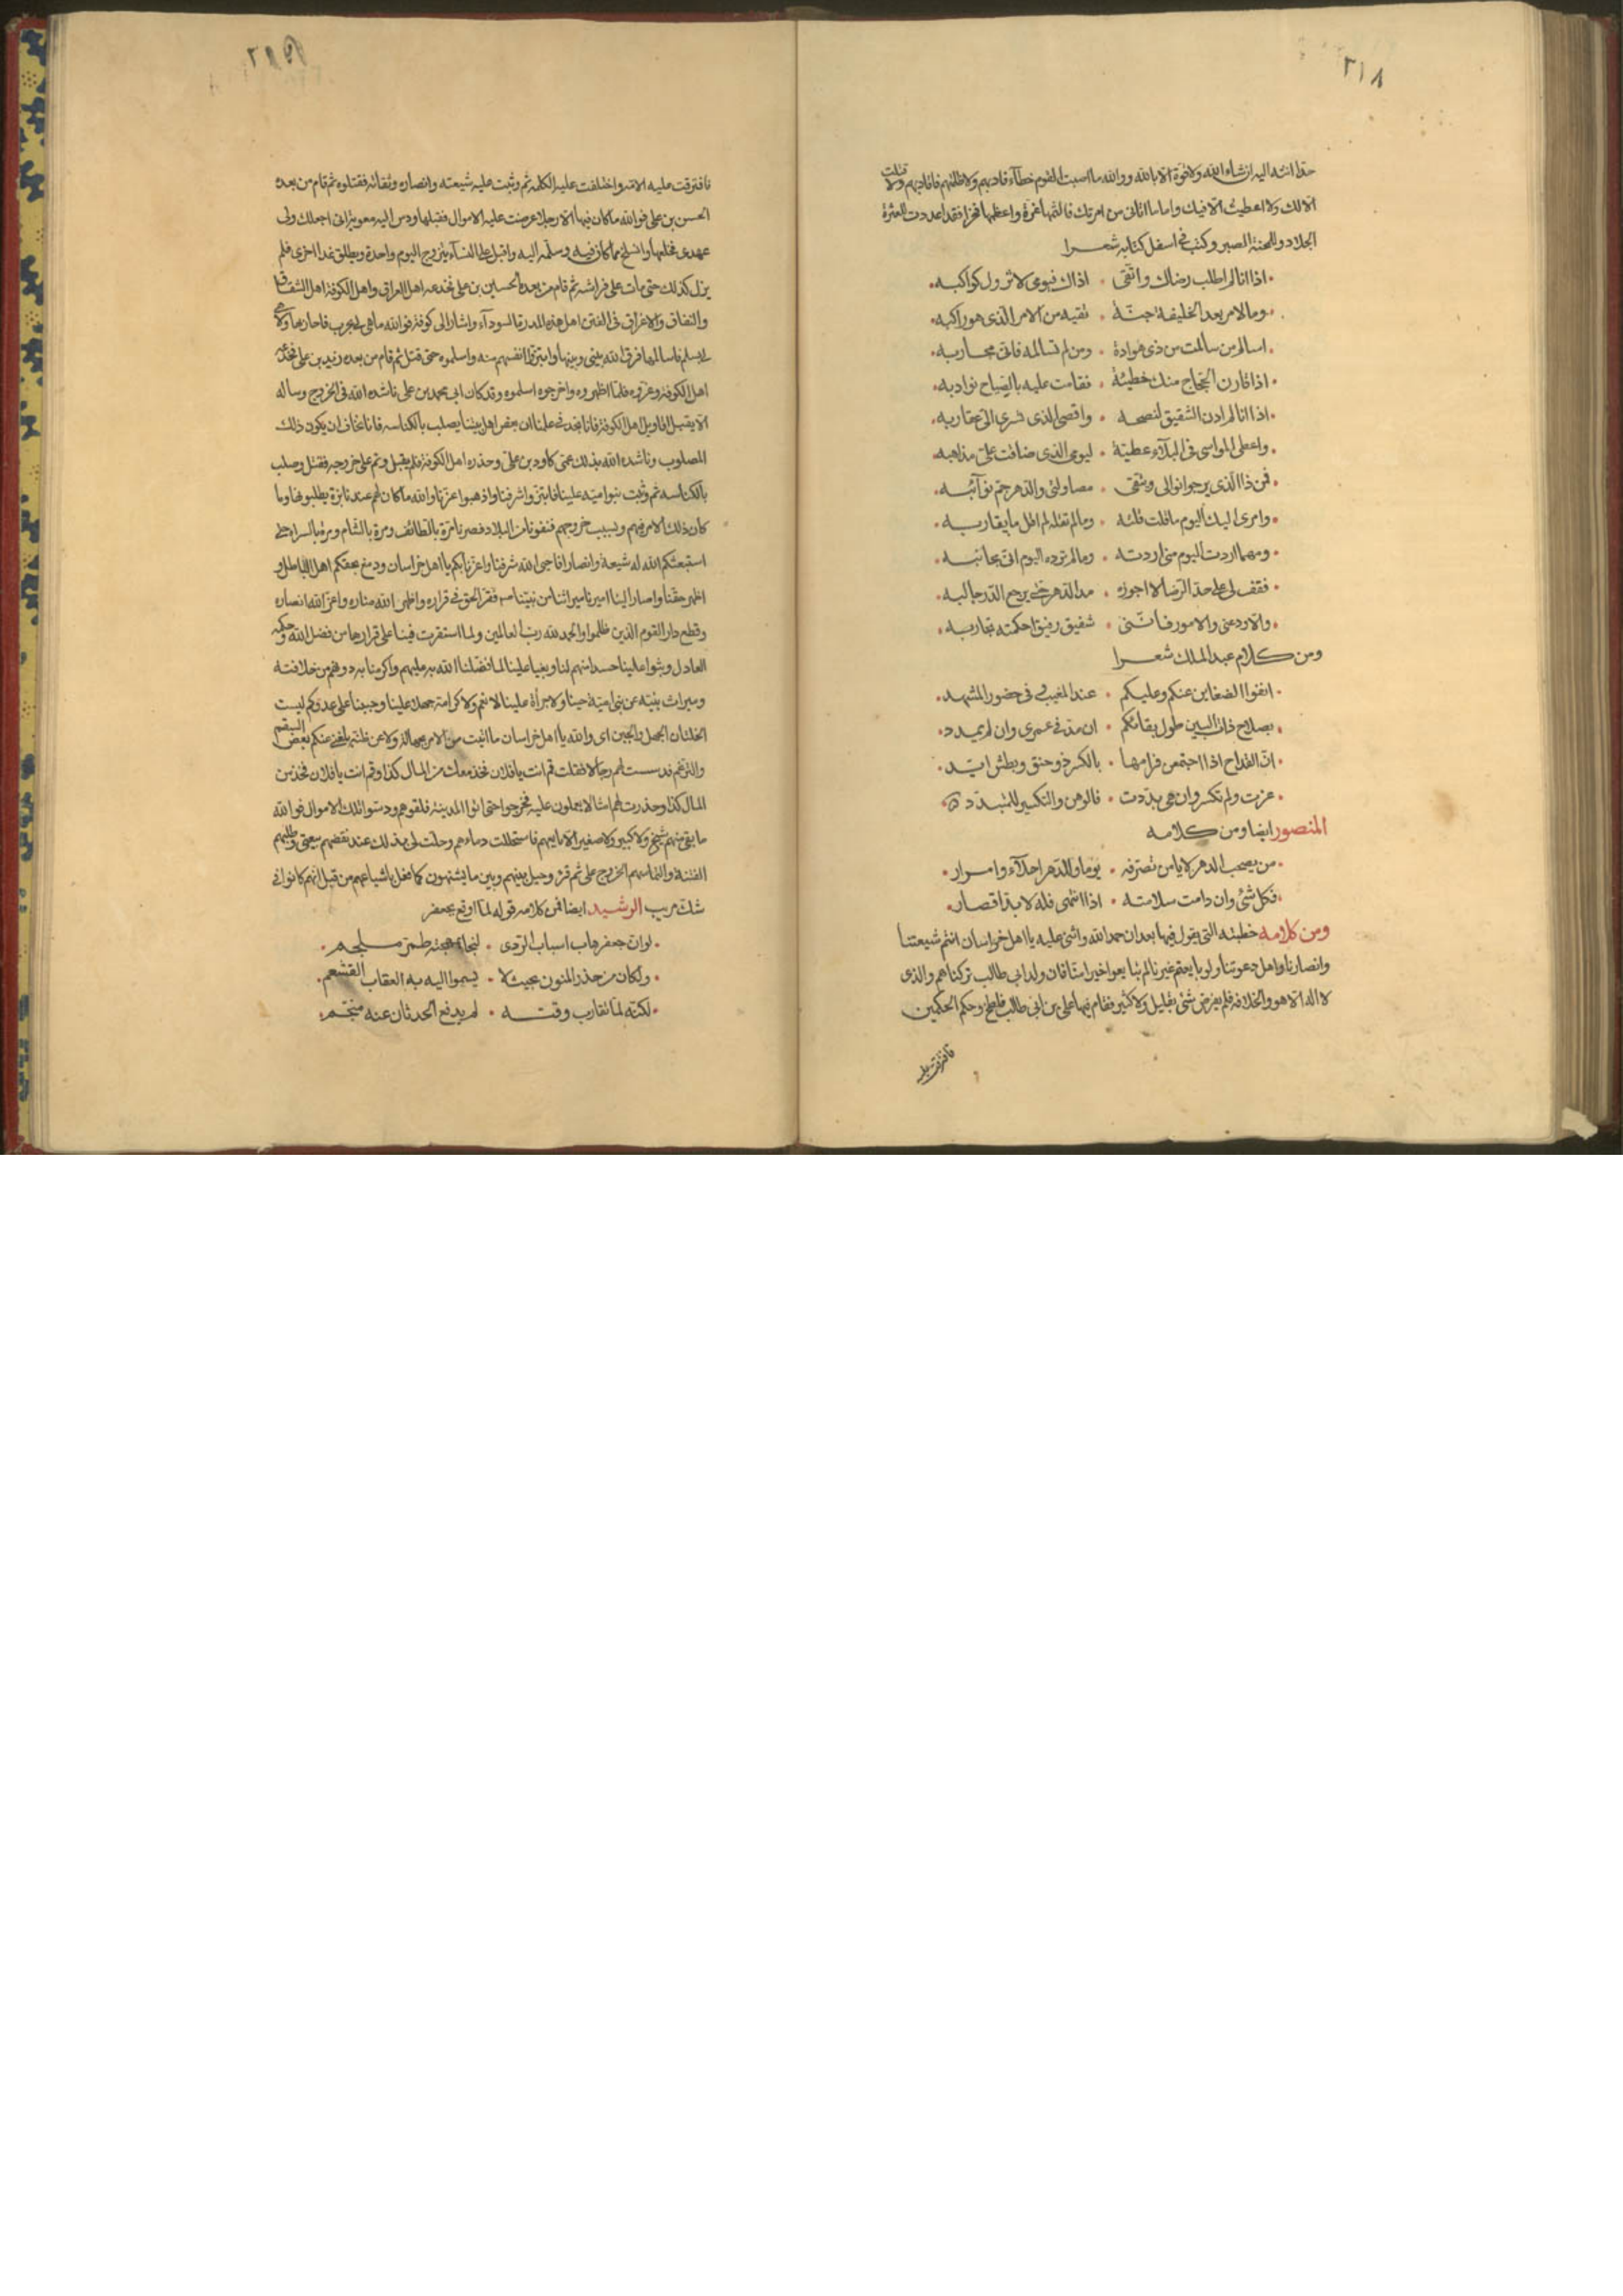 ٢١٨
حقا انته اليه ان شاء الله ولا قوة الا بالله ووالله ما اصبت القوم خطاء فاديهم ولا ظلمتهم فاقاد بهم ولا قتلت
الا لك ولا اعطيت الا فيك واما ما اتانى من امرتك فالينها غرة واعظمها فخرا فقد اعددت للعثرة
الجلاد وللمحنة الصبر وكتب فى اسفل كتابه شعرا
اذا انا لم اطلب رضاك واتقى • اذاك فيومى لا تزول كواكبه
وما لامر بعد الخليفة جنة • تقيه من الامر الذى هو راكبه
اسالم من سالمت من ذى هوادة • ومن لم تسالمه فانى محاربه
اذا قارن الحجاج منك خطيئة • فقامت عليه بالصباح نوادبه
اذا انا لم ادن الشفيق لنصحه • واقصى الذى تسرى الى عقاربه
واعطى المواسى فى البلاء عطية • ليوم الذى ضاقت على مذاهبه
فمن ذا الذى يرجو نوالى ويتقى • مصاولتى والدهر جم نوائبه
وامرى اليك اليوم ما قلت قلته • وما لم تقله لم اقل ما يقاربه
ومهما اردت اليوم منى اردته • وما لم ترده اليوم انى مجانبه
فقف لى على حد الرضا لا اجوزه • مدا لدهر حتى يرجع الدر حالبه
والا دعنى والامور فاننى • شفيق رفيق احكمته تجاربه
ومن كلام عبد الملك شعرا
انفوا الضغاين عنكم وعليكم • عند المغيب فى حضور المشهد
بصلاح ذات البين طول بقائكم • ان مد فى عمرى وان لم يمدد
ان القداح اذا اجتمعن فرامها • بالكسر ذو حنق وبطش ايد
عزت ولم تكسر وان هى بددت • فالوهن والتكسير للمتبدد
المنصور ايضا ومن كلامه
من يصحب الدهر لا يامن تصرفه • يوما وللدهر احلاء وامرار
فكل شئ وان دامت سلامته • اذا انتهى فله لا بد اقصار
ومن كلامه خطبته التى يقول فيها بعد ان حمد الله واثنى عليه يا اهل خراسان انتم شيعتنا
وانصارنا واهل دعوتنا ولو بايعتم غيرنا لم تبايعوا خيرا منا فان ولد ابى طالب تركناهم والذى
لا اله الا هو والخلافة فلم نعرض شئ بقليل ولا كثير فقام فيها على بن ابى طالب فلطخ وحكم الحكمين
فافترقت عليه
٢١٩
فافترقت عليه الامة واختلفت عليه الكلمة ثم وثبت عليه شيعته وانصاره وثقاته فقتلوه ثم قام من بعده
الحسن بن على فوالله ما كان فيها الا رجلا عرضت عليه الاموال فقبلها ودس اليه معوية انى اجعلك ولى
عهدى فخلعها وانسلخ مما كان فيه وسلمه اليه واقبل على النساء يتزوج اليوم واحدة ويطلق غدا اخرى فلم
يزل كذلك حتى مات على فراشه ثم قام من بعده الحسين بن على فخدعه اهل العراق واهل الكوفة اهل الشقاق
والنفاق والاغراق فى الفتن اهل هذه المدرة السوداء واشار الى كوفة فوالله ما هى لى بحرب فاحاربها ولا هى
لى بسلم فاسالمها فرق الله بينى وبينها وابتروا انفسهم منه واسلموه حتى قتل ثم قام من بعده زيد بن على فخدعه
اهل الكوفة وغروه فلما اظهروه واخرجوه اسلموه وقد كان ابى محمد بن على ناشده الله فى الخروج وساله
الا يقبل اقاويل اهل الكوفة فانا نجد فى علمنا ان بعض اهل بيتنا يصلب بالكناسه فانا نخاف ان يكون ذلك
المصلوب وناشده الله بذلك عمى داود بن على وحذره اهل الكوفة فلم يقبل وتم على خروجه فقتل وصلب
بالكناسه ثم وثبت بنو اميه علينا فابتزوا شرفنا واذهبوا عزنا والله ما كان لهم عندنا ترة يطلبونها وما
كان ذلك الامر فيهم وبسبب خروجهم فنفونا من البلاد فصرنا مرة بالطائف ومرة بالشام ومرة بالسراة حتى
استبعثكم الله له شيعة وانصارا فاحيى الله شرفنا واعزنا بكم يا اهل خراسان ودمغ بحقكم اهل الباطل و
اظهر حقنا واصار الينا امرنا ميراثنا من نبينا فقر الحق فى قراره واظهر الله مناره واعز الله انصاره
وقطع دابر القوم الذين ظلموا والحمد لله رب العالمين ولما استقرت فينا على قرارها من فضل الله وحكمه
العادل وثبوا علينا حسدا منهم لنا وبغيا علينا لما فضلنا الله به عليهم واكرمنا به دونهم من خلافته
وميراث نبيه عن بنى امية جبنا ولا جراة علينا لا نعم ولا كرامة جهلا علينا وجبنا على عدوكم ليست
الخلتان الجهل والجبن اى والله يا اهل خراسان ما اتيت من الامر بجهالة ولا عن ظنة بلغنى عنكم بعض السقم
والتزعم فدسست لهم رجالا فقلت قم انت يا فلان فخذ معك من المال كذا وقم انت يا فلان فخذ من
المال كذا وحذوت لهم مثالا يعملون عليه فخرجوا حتى اتوا المدينة فلقوهم ودسوا تلك الاموال فوالله
ما بقى منهم شيخ ولا كبير ولا صغير الا بايعهم فاستحللت دماءهم وحلت لى بذلك عند نقضهم بيعتى وطلبهم
الفتنة والتماسهم الخروج على ثم قرء وحيل بينهم وبين ما يشتهون كما فعل باشياعهم من قبل انهم كانوا فى
شك مريب الرشيد ايضا فمن كلامه قوله لما اوقع بجعفر
لو ان جعفر هاب اسباب الردى • لنجا بمهجته طمر ملجم
ولكان من حذر المنون بحيث لا • يسموا اليه به العقاب القشعم
لكنه لما تقارب وقته • لم يدفع الحدثان عنه منجم